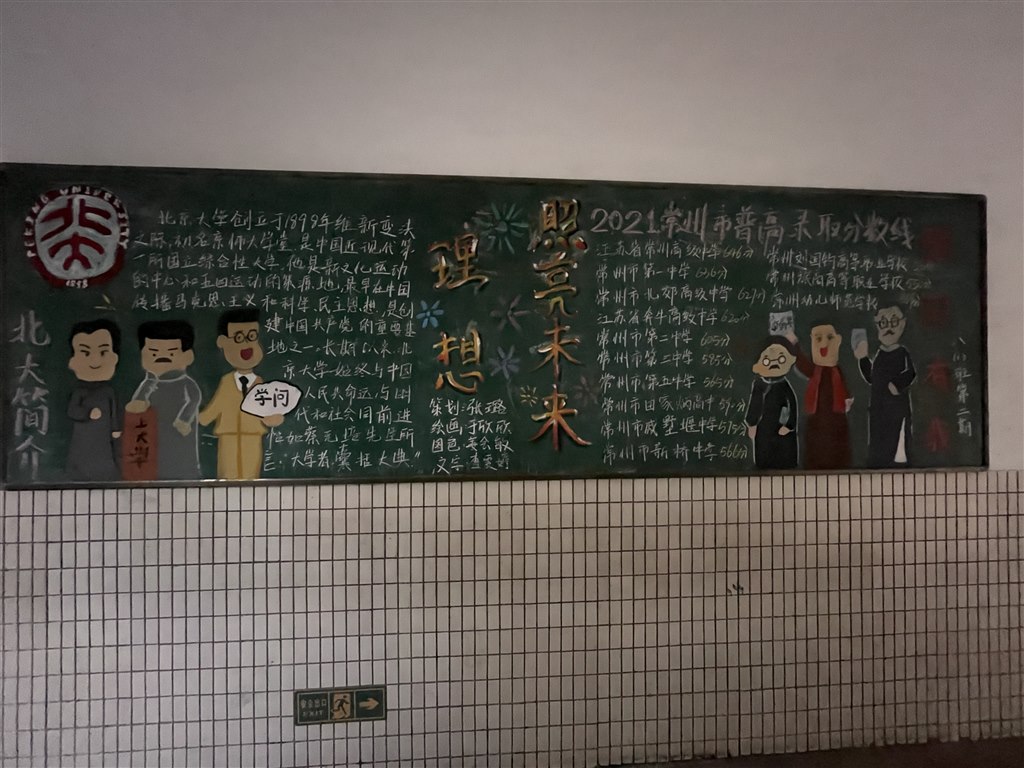 PEKING UNIVERSITY
1898
北大简介
北京大学创立于1898年维新变法
之际,初名京师大学堂,是中国近现代第
一所国立综合性大学,他是新文化运动
的中心和五四运动的策源地,最早在中国
传播马克思主义和科学、民主思想,是创
建中国共产党的重要基
地之一。长期以来,北
京大学始终与中国
人民共命运,与时
代和社会同前进
恰如蔡元培先生所
言:"大学者,囊括大典"
北大
学问
理想
照亮未来
策划:张璐
绘画:于欣欣
2021常州市普高录取分数线
江苏省常州高级中学646分
常州市第一中学636分
常州市北郊高级中学629分
江苏省奔牛高级中学620分
常州市第二中学605分
常州市第三中学595分
常州市第五中学565分
常州市田家炳高中
常州市戚墅堰中学575分
常州市新桥中学566分
常州刘国钧高等职业学校
常州旅商高等职业学校
苏州幼儿师范学校
班第二期
安全出口
EXIT